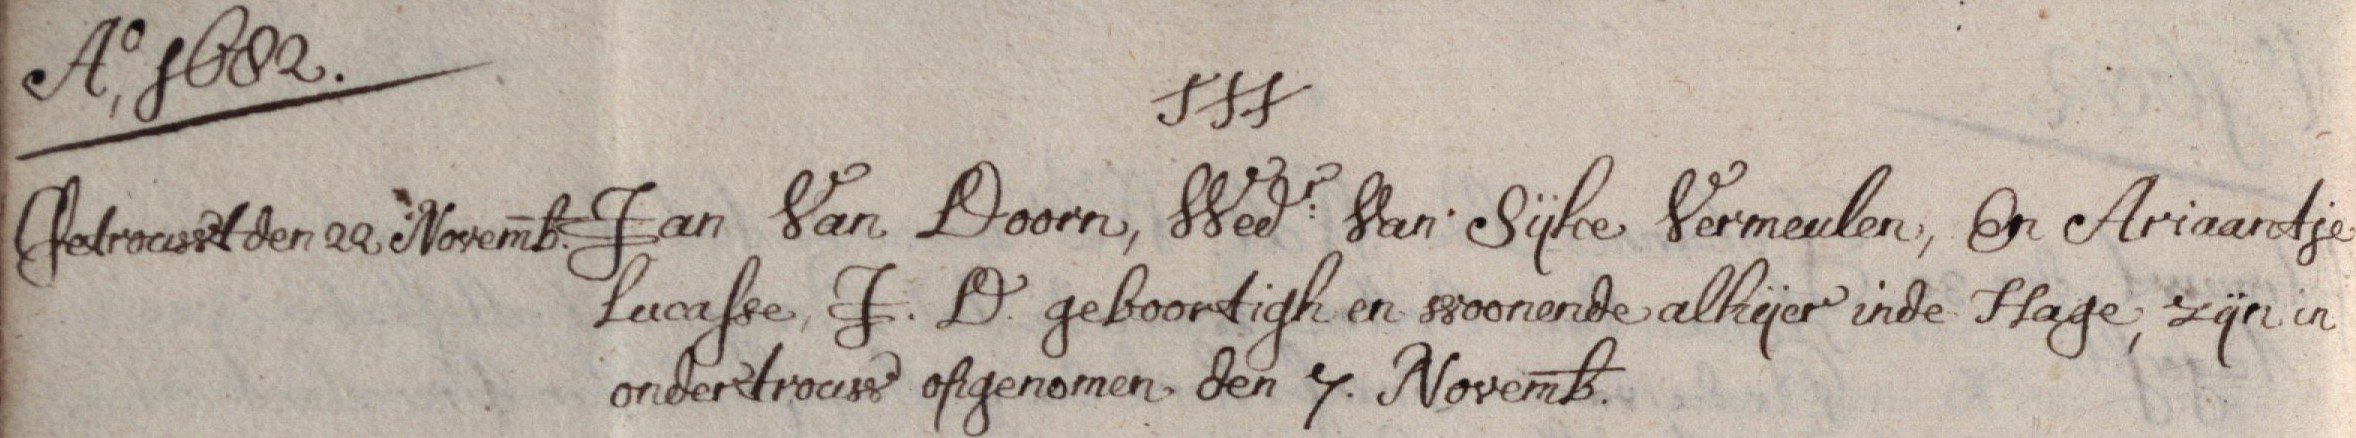 Aº, 1682.
fff
Getrouwt den 22 Novemb. Jan Van Doorn, Wedr. Van Sijtce Vermeulen, En Ariaantje
Lucasse, J. D. geboortigh en woonende alhijer inde Hage, zijn in
ondertrouw opgenomen den 7. Novemb.